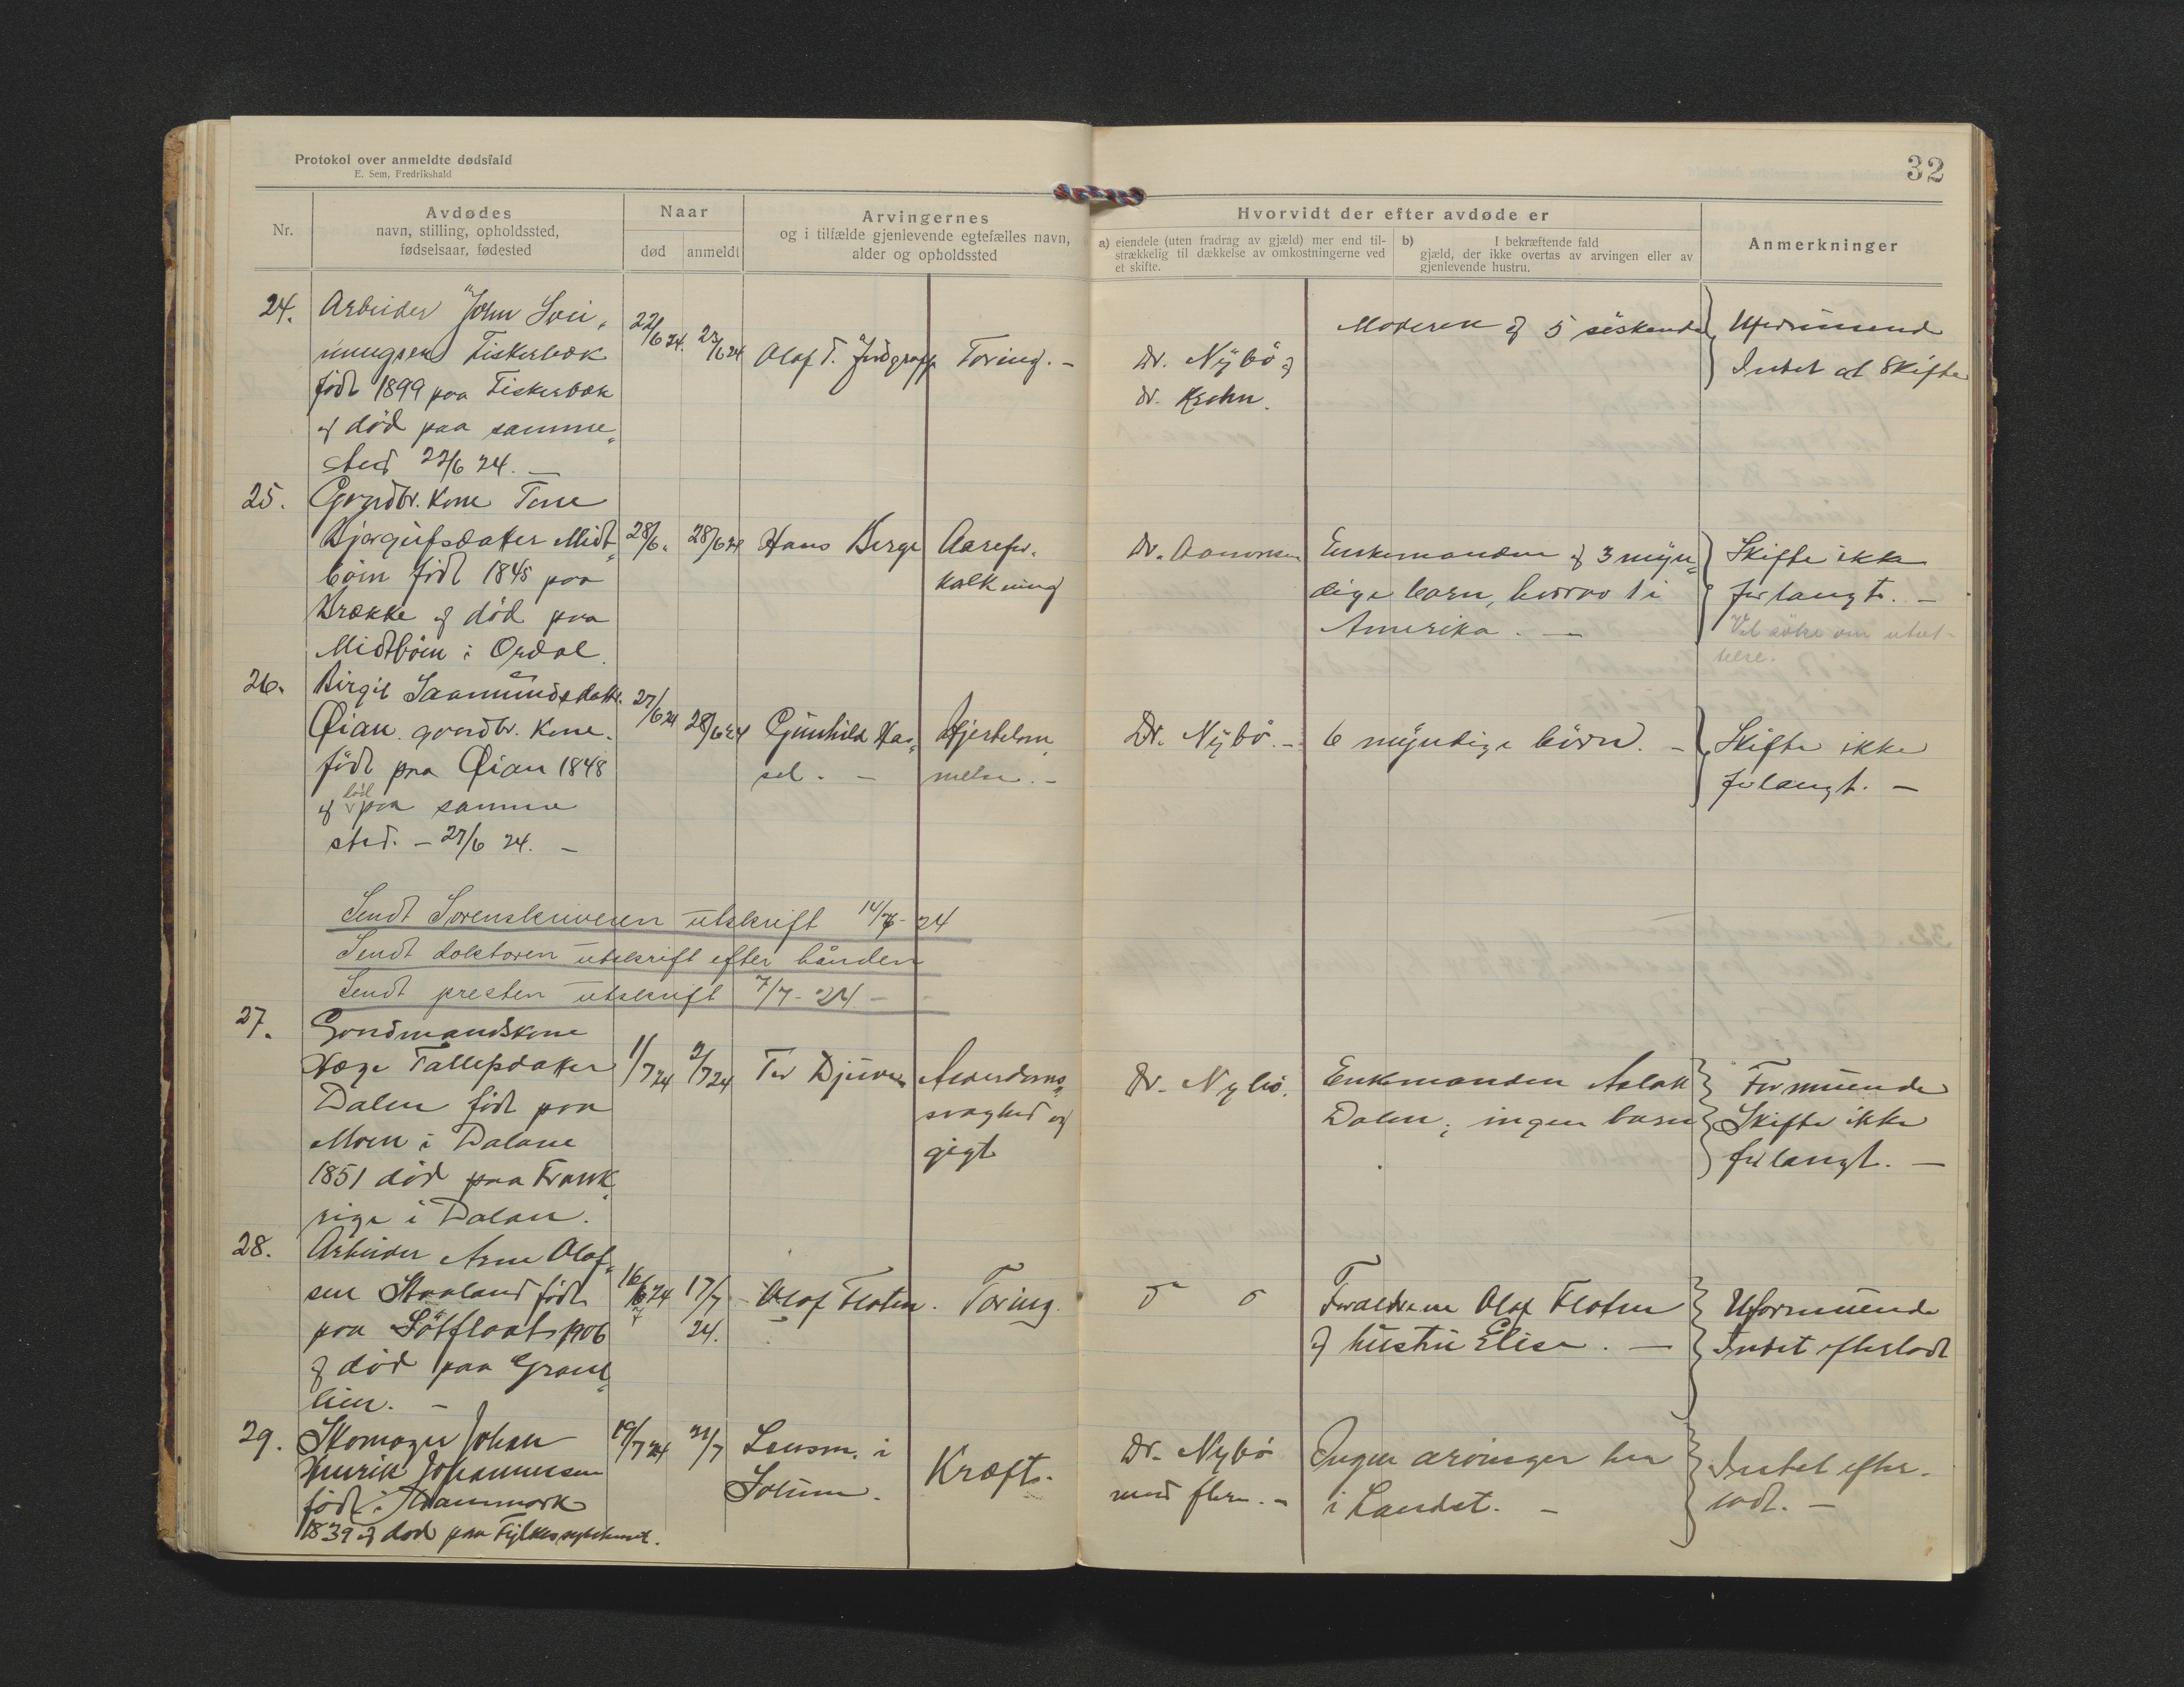 Protokol over anmeldte dødsfald
E. Sem, Fredrikshald
32
Nr.
Avdødes
navn, stilling, opholdssted,
fødselsaar, fødested
Naar
død
anmeldt
Arvingernes
og i tilfælde gjenlevende egtefælles navn,
alder og opholdssted
Hvorvidt der efter avdøde er
a) eiendele (uten fradrag av gjæld) mer end til-
strækkelig til dækkelse av omkostningerne ved
et skifte.
b) I bekræftende fald
gjæld, der ikke overtas av arvingen eller av
gjenlevende hustru.
Anmerkninger
24.
Arbeider John Svei-
nungsen Fiskerbæk
født 1899 paa Fiskerbæk
og död paa samme
sted 22/6 24. –
22/6 24.
23/6 24
Olaf T.
Tæring. –
Dr. Nybö og
dr. Krohn.
Moderen og 5 söskende
Uformuend
Intet at Skifte
25.
Gaardbr. kone Tone
Bjørgufsdatter Midt-
böen født 1845 paa
Brække og död paa
Midtböen i Ordal.
28/6.
28/6 24
Hans Berge
Aarefor-
kalkning
Dr. Aanonsen
Enkemanden og 3 myn-
dige barn, hvorav 1 i
Amerika. –
Skifte ikke
forlangt. –
Vil söke om utset-
telse.
26.
Birgit Saamundsdatter
Øian gaardbr. kone.
født paa Øian 1848
og död paa samme
sted. – 27/6 24. –
27/6 24
28/6 24
Gunhild Has-
sel. –
Hjertelam-
melse. –
Dr. Nybö. –
6 myndige börn. –
Skifte ikke
forlangt. –
Sendt Sorenskriveren utskrift 14/7 - 24
Sendt doktoren utskrift efter hånden
Sendt presten utskrift 7/7 - 24 –
27.
Gardmandskone
Hæge Tallefsdatter
Dalen født paa
Moen i Dalane
1851 död paa Frank-
rige i Dalen.
1/7 24
2/7 24
Tor Djuve
Alderdoms-
svaghed og
gigt
Dr. Nybö.
Enkemanden Aslak
Dalen, ingen barn
Formuende
Skifte ikke
forlangt. –
28.
Arbeider Arne Olaf-
sen Skaland født
paa Götfloat 1906
og död paa Gran-
lien. –
16/7 24
17/7
24.
Olaf Flaten.
Tæring.
Forældrene Olaf Flaten
og hustru Elise. –
Uformuende
Intet efterladt
29.
Skomager Johan
Henrik Johannessen
født i Danmark
1839 og død paa Fylkessykehuset.
19/7 24
21/7
Lensm. i
Solum.
Kræft.
Dr. Nybö
med flere. –
Ingen arvinger her
i Landet. –
Intet efter-
ladt. –